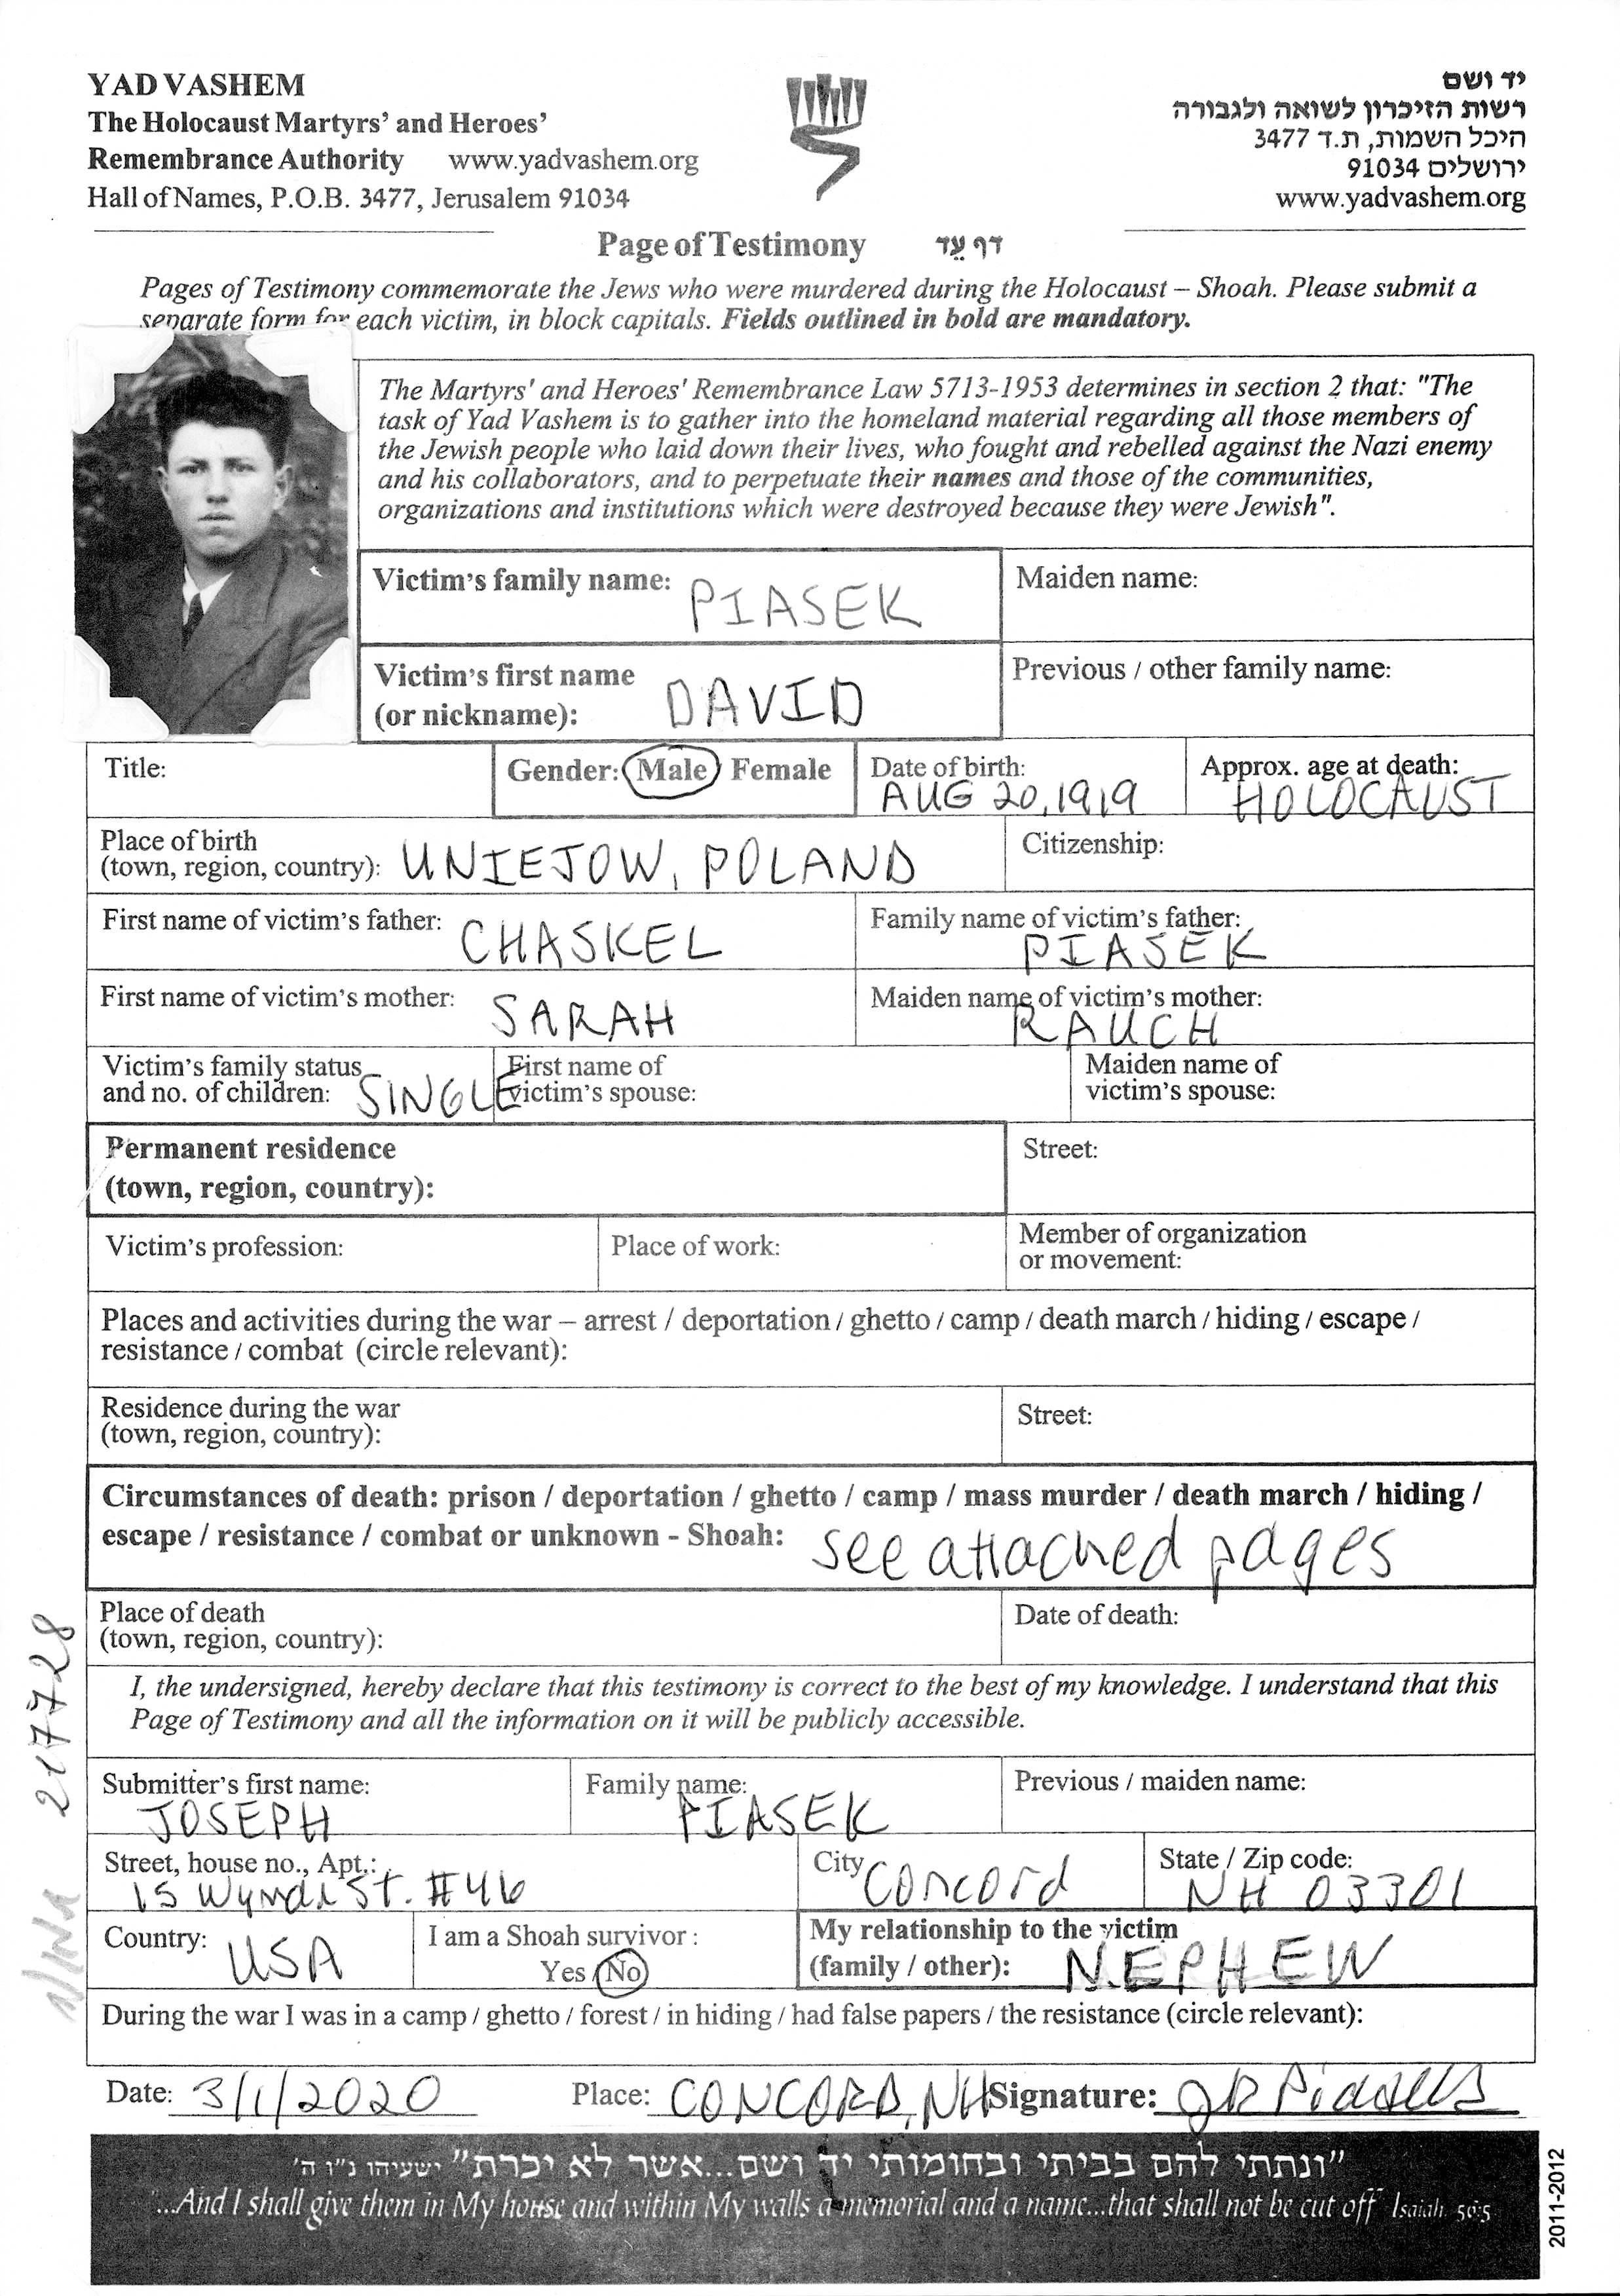 YAD VASHEM
The Holocaust Martyrs' and Heroes'
Remembrance Authority www.yadvashem.org
Hall of Names, P.O.B. 3477, Jerusalem 91034
יד ושם
רשות הזיכרון לשואה ולגבורה
היכל השמות, ת.ד 3477
ירושלים 91034
www.yadvashem.org
Page of Testimony דף עֵד
Pages of Testimony commemorate the Jews who were murdered during the Holocaust – Shoah. Please submit a
separate form for each victim, in block capitals. Fields outlined in bold are mandatory.
The Martyrs' and Heroes' Remembrance Law 5713-1953 determines in section 2 that: "The
task of Yad Vashem is to gather into the homeland material regarding all those members of
the Jewish people who laid down their lives, who fought and rebelled against the Nazi enemy
and his collaborators, and to perpetuate their names and those of the communities,
organizations and institutions which were destroyed because they were Jewish".
Victim's family name: PIASEK
Maiden name:
Victim's first name
(or nickname): DAVID
Previous / other family name:
Title:
Gender: Male Female
Date of birth:
AUG 20, 1919
Approx. age at death:
HOLOCAUST
Place of birth
(town, region, country): UNIEJOW, POLAND
Citizenship:
First name of victim's father: CHASKEL
Family name of victim's father:
PIASEK
First name of victim's mother: SARAH
Maiden name of victim's mother:
RAUCH
Victim's family status
and no. of children: SINGLE
First name of
victim's spouse:
Maiden name of
victim's spouse:
Permanent residence
(town, region, country):
Street:
Victim's profession:
Place of work:
Member of organization
or movement:
Places and activities during the war – arrest / deportation / ghetto / camp / death march / hiding / escape /
resistance / combat (circle relevant):
Residence during the war
(town, region, country):
Street:
Circumstances of death: prison / deportation / ghetto / camp / mass murder / death march / hiding /
escape / resistance / combat or unknown - Shoah: see attached pages
Place of death
(town, region, country):
Date of death:
I, the undersigned, hereby declare that this testimony is correct to the best of my knowledge. I understand that this
Page of Testimony and all the information on it will be publicly accessible.
Submitter's first name:
JOSEPH
Family name:
PIASEK
Previous / maiden name:
Street, house no., Apt.:
15 St. #46
City Concord
State / Zip code:
NH 03301
Country: USA
I am a Shoah survivor :
Yes / No
My relationship to the victim
(family / other): NEPHEW
During the war I was in a camp / ghetto / forest / in hiding / had false papers / the resistance (circle relevant):
Date: 3/1/2020 Place: CONCORD, NH Signature:
"ונתתי להם בביתי ובחומותי יד ושם...אשר לא יכרת" ישעיהו נ"ו ה'
"...And I shall give them in My house and within My walls a memorial and a name...that shall not be cut off" Isaiah 56:5
2011-2012
217728